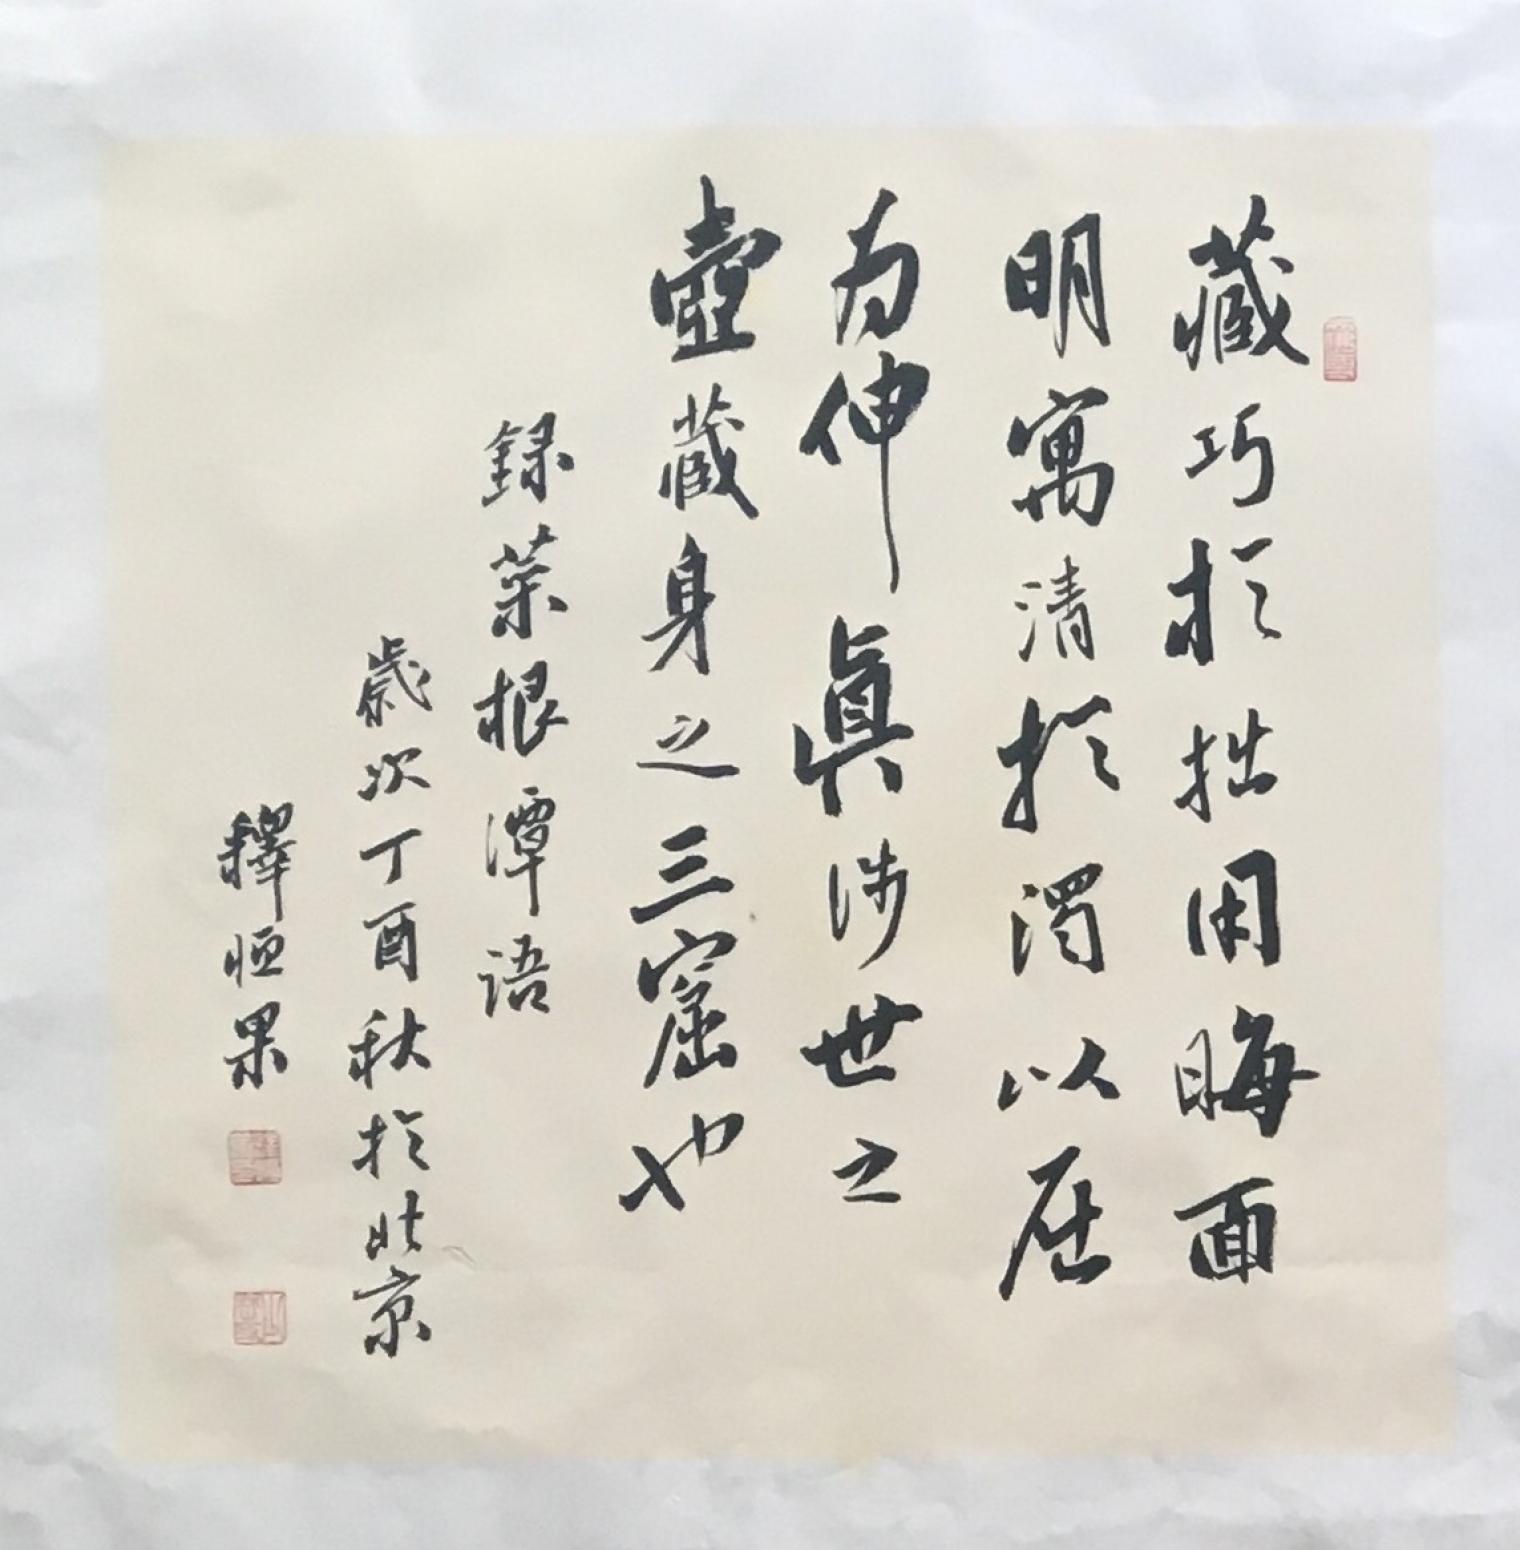 藏巧於拙用晦面
明寓清於濁以屈
為伸真涉世之
壺藏身之三窟也
録菜根潭语
歲次丁酉秋於北京
釋恒果